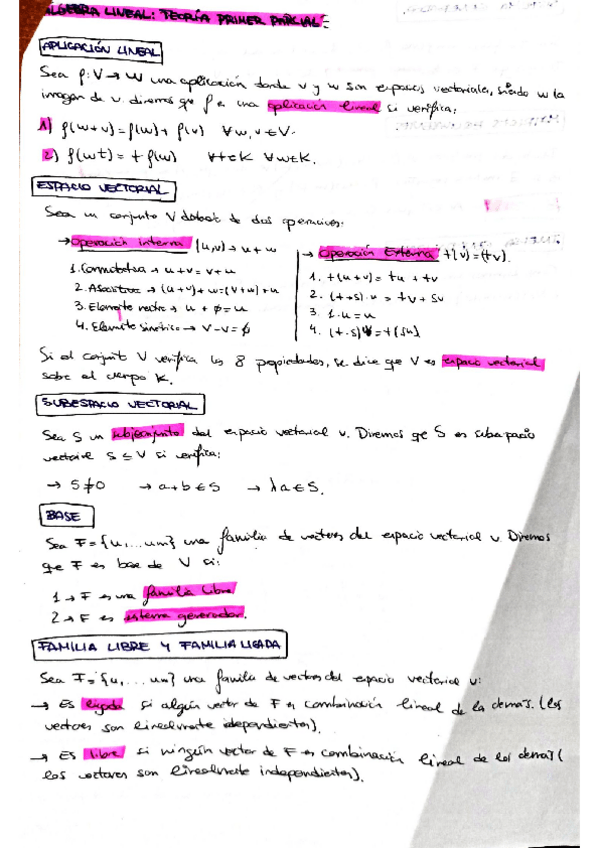 ALGEBRA LINEAL: TEORÍA PRIMER PARCIAL:
APLICACIÓN LINEAL
Sea f: V → W una aplicación donde v y w son espacios vectoriales, siendo w la
imagen de v. diremos que f es una aplicación lineal si verifica:
1) f(w+v) = f(w) + f(v) ∀w,v ∈ V.
2) f(wt) = t f(w) ∀t∈K ∀w∈K.
ESPACIO VECTORIAL
Sea un conjunto V dotado de dos operaciones:
→ Operación interna (u,v) → u+w
1. Conmutativa → u+v = v+u
2. Asociativa → (u+v)+w = (v+w)+u
3. Elemento neutro → u + ø = u
4. Elemento simétrico → v-v = ø
→ Operación Externa t(v) = (tv)
1. t(u+v) = tu + tv
2. (t+s)·u = tv + su
3. 1·u = u
4. (t·s) = t(su)
Si el conjunto V verifica las 8 propiedades, se dice que V es espacio vectorial
sobre el cuerpo K.
SUBESPACIO VECTORIAL
Sea S un subconjunto del espacio vectorial v. Diremos qe S es subespacio
vectorial S ≤ V si verifica:
→ S≠0 → a+b ∈ S → λa ∈ S.
BASE
Sea F = {u,...um} una familia de vectores del espacio vectorial v. Diremos
que F es base de V si:
1 → F es una familia libre
2 → F es sistema generador.
FAMILIA LIBRE Y FAMILIA LIGADA
Sea F = {u,...um} una familia de vectores del espacio vectorial v:
→ Es ligada si algún vector de F es combinación lineal de los demás. (los
vectores son linealmente dependientes).
→ Es libre si ningún vector de F es combinación lineal de los demás (
los vectores son linealmente independientes).